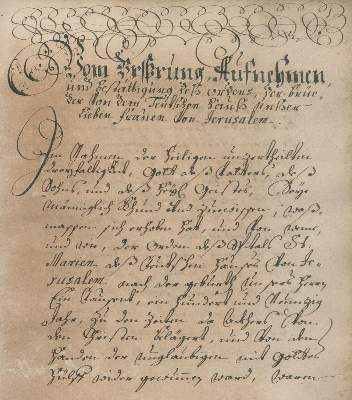 Vom Ursprung, Aufnehmen
und Bestättigung deß ordens, der brüe,
der von dem Teutschen Hauß unßer
Lieben Frauen von Jerusalem.
Im Nahmen der Heiligen unzertheilten
Dreyfaltigkeit, Gott deß Vatters, deß
Sohns, und deß Heyl. Geistes, Seye
männiglich Khund und zuewissen, waß,
massen sich erhoben hat, und von wem,
und von, der Orden deß Spitals St.
Marien deß Teutschen Hauses von Je,
rusalem. nach der geburth unsers Herrn
Ein Tausent, ein hundert und Neuntzig
Jahr, Zu den Zeiten da von
den Christen belägert, und von den
Handen der unglaubigen mit Gottes
Hülff wider gewunnen ward, waren